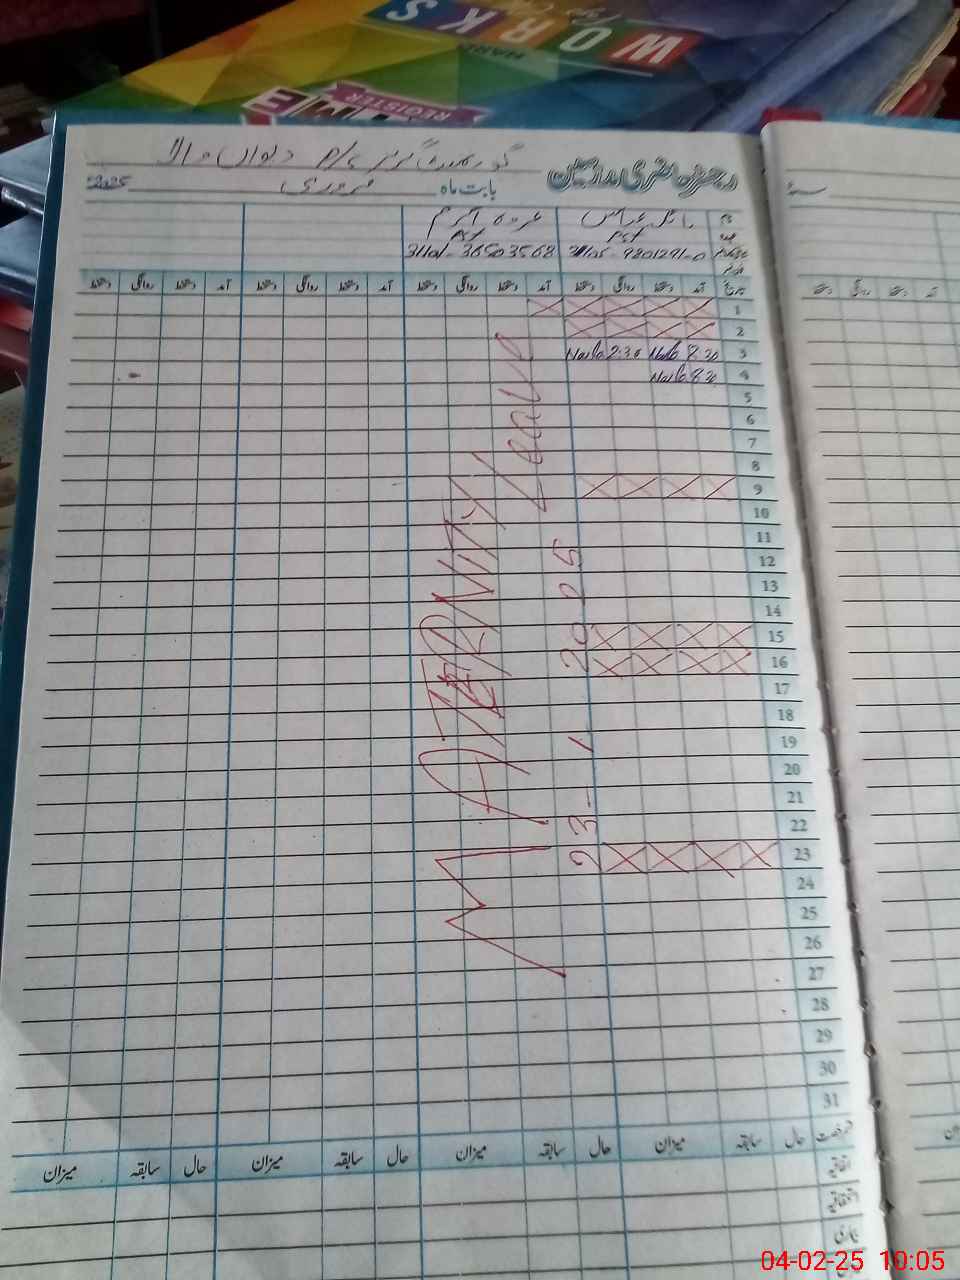 WORKS
SHARE
REGISTER
رجسٹر حاضری ملازمین
گورنمنٹ گرلز P/S دیواں والا
بابت ماہ فروری 2025
نام
PST PST
31101-36503568
تاریخ آمد دستخط روانگی دستخط آمد دستخط روانگی دستخط آمد دستخط روانگی دستخط آمد دستخط روانگی دستخط
1
2
3 8:30 2:30
4 8:30
5
6
7
8
9
10
11
12
13
14
15
16
17
18
19
20
21
22
23
24
25
26
27
28
29
30
31
MATERNITY Leave
23-1-2025
رخصت حال سابقہ میزان حال سابقہ میزان حال سابقہ میزان
اتفاقیہ
استحقاقیہ
بیماری
04-02-25 10:05